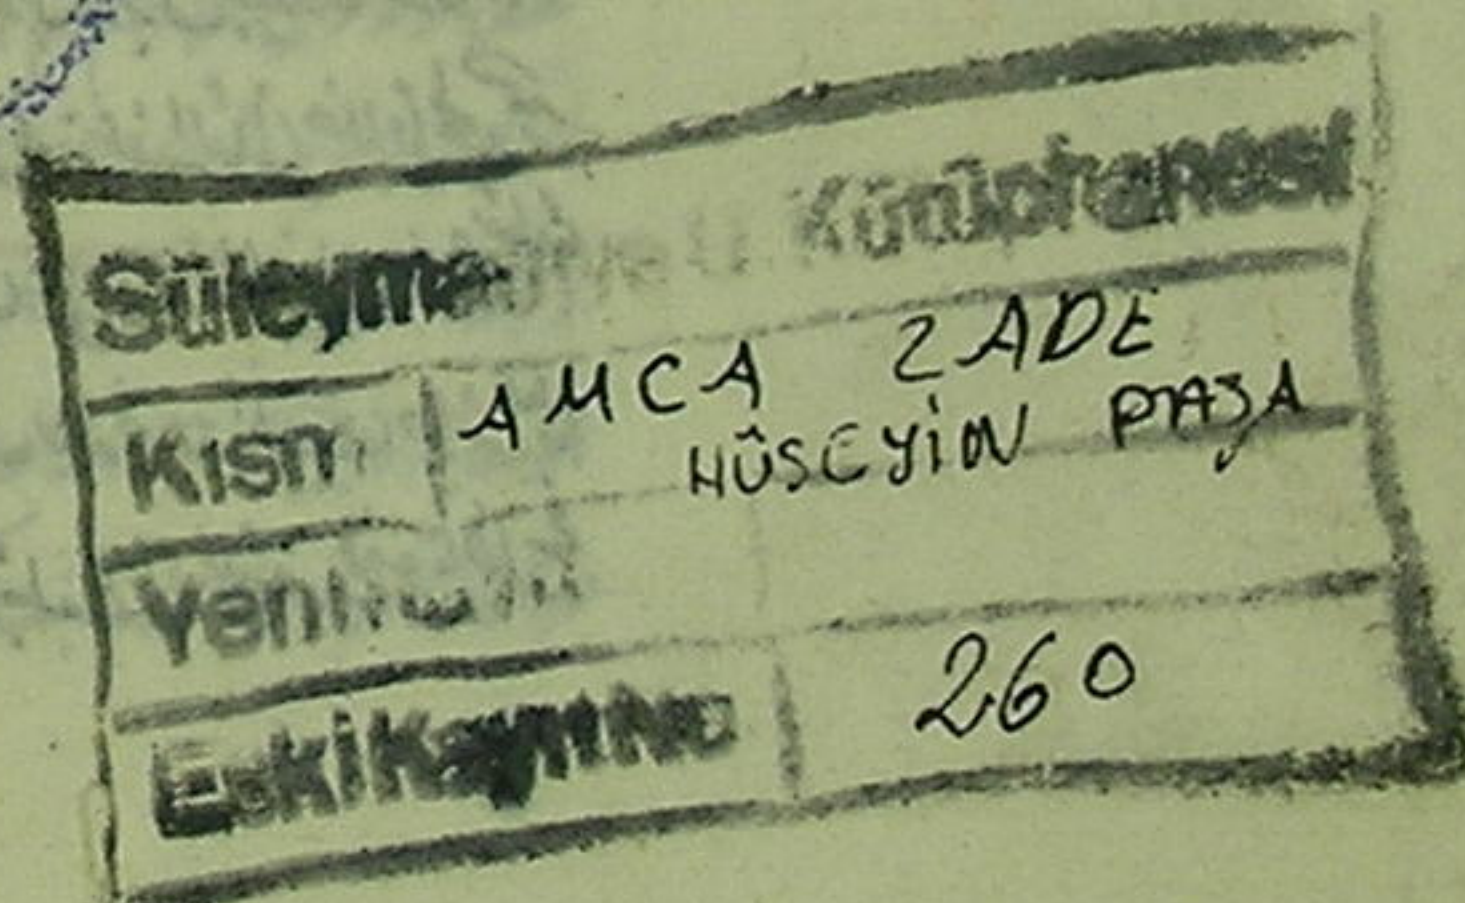 Süleymaniye U. Kütüphanesi
Kısmı AMCA ZADE
HÜSEYİN PAŞA
Yeni
Eski Kayıt No 260